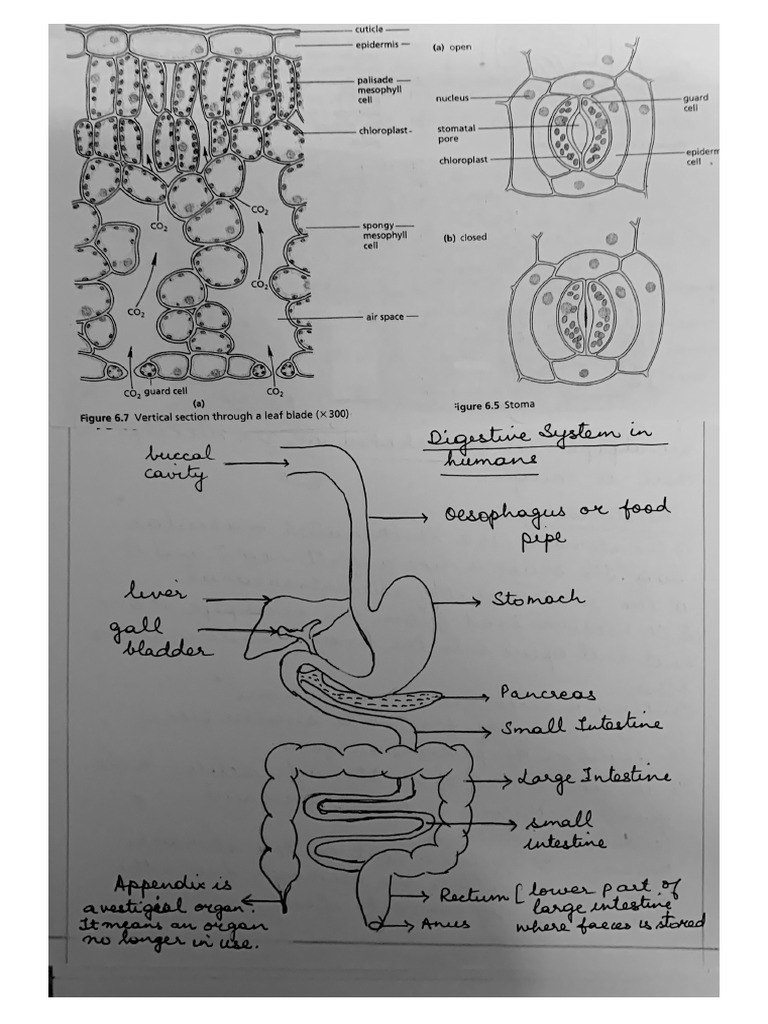 cuticle
epidermis
palisade
mesophyll
cell
chloroplast
CO2
CO2
spongy
mesophyll
cell
CO2
CO2
air space
CO2 guard cell
CO2
(a)
Figure 6.7 Vertical section through a leaf blade (×300)
(a) open
nucleus
guard
cell
stomatal
pore
chloroplast
epiderm
cell
(b) closed
igure 6.5 Stoma
Digestive System in
humans
buccal
cavity
Oesophagus or food
pipe
liver
Stomach
gall
bladder
Pancreas
Small Intestine
Large Intestine
small
intestine
Appendix is
a vestigial organ.
It means an organ
no longer in use.
Rectum [lower part of
large intestine
where faeces is stored
Anus